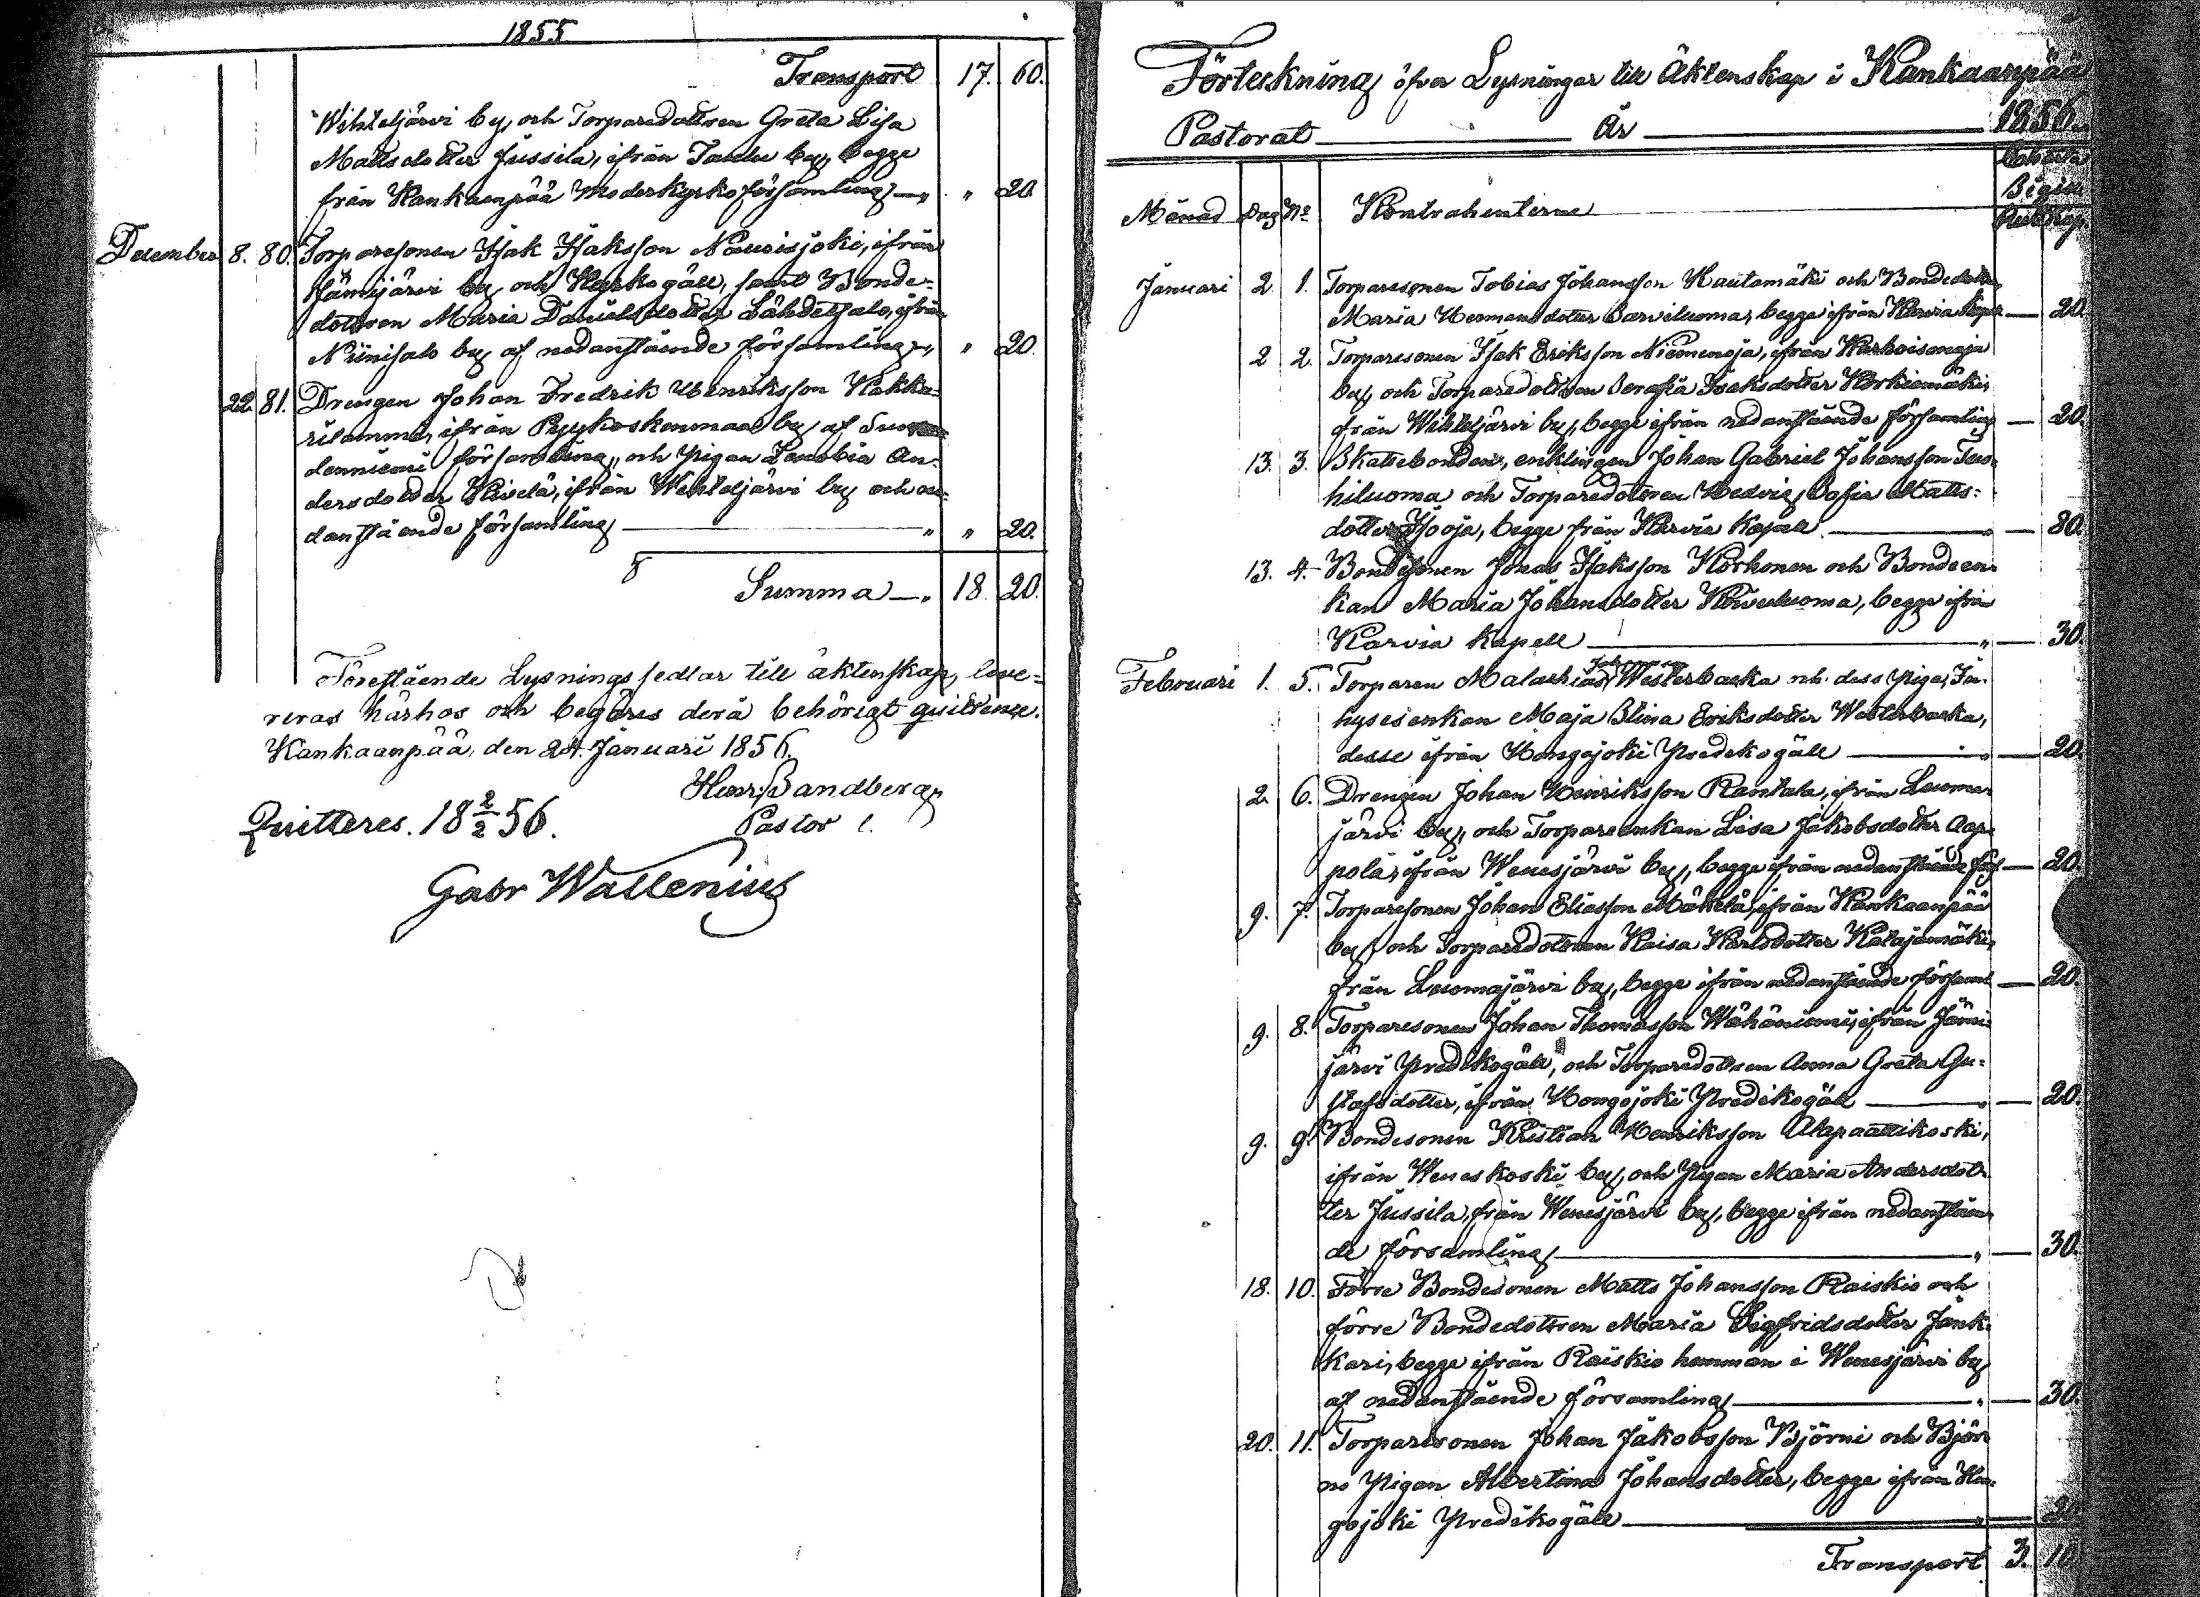 1855
Transport 17. 60.
Wihteljärvi by, och Torparedottren Greta Lisa
Mattsdotter Jussila, ifrån Taulu by, begge
från Kankaanpää Moderkyrkoförsamling — „ „ 20
December 8. 80. Torparesonen Isak Isaksson Naurisjoki, ifrån
Jämijärvi by och Kyrkogäll, samt Bonde-
dottren Maria Danielsdotter Lähdetsalo, ifrån
Niinisalo by af nedanstående församling „ „ 20
22. 81. Drengen Johan Fredrik Henriksson
ifrån by af
församling, och Pigan An-
dersdotter ifrån Wihteljärvi by och ne-
danstående församling — „ „ 20.
Summa — „ 18. 20.
Förestående Lysningssedlar till äktenskap, leve-
reras härhos och begäres derå behörigt quittence.
Kankaanpää, den 24. Januari 1856.
Henr. Sandberg
Pastor
Quitteres. 18 2/2 56.
Gabr Wallenius
Förteckning öfver Lysningar till Äktenskap i Kankaanpää
Pastorat — År — 1856.
Månad Dag No Kontrahenterne
Januari 2 1. Torparesonen Tobias Johansson Hautamäki och Bondedottren
Maria Hermansdotter Sarviluoma, begge ifrån Karvia Kapell — 20
2 2. Torparesonen Isak Eriksson ifrån
by, och Torparedottren Serafia Isaksdotter
från Wihteljärvi by, begge ifrån nedanstående församling — 20.
13. 3. Skattebonden, enklingen Johan Gabriel Johansson
och Torparedottren Hedvig Sofia Matts-
dotter begge från Karvia Kapell — „ — 80.
13. 4. Bondesonen Jonas Isaksson Korhonen och Bondeen-
kan Maria Johansdotter begge ifrån
Karvia Kapell — „ — 30.
Februari 1. 5. Torparen Malachias Westerbacka och dess Piga, In-
hysesenkan Maja Stina Eriksdotter Westerbacka,
desse ifrån Hongojoki Predikogäll — „ — 20.
2. 6. Drengen Johan Henriksson Rantala, ifrån Luoma-
järvi by, och Torpareenkan Lisa Jakobsdotter
ifrån Wenesjärvi by, begge ifrån nedanstående förs — 20.
9. 7. Torparesonen Johan Eliasson Mäkelä, ifrån Kankaanpää
by, och Torparedottren Kaisa Karlsdotter Katajamäki,
från Luomajärvi by, begge ifrån nedanstående församl — 20.
9. 8. Torparesonen Johan Thomasson Wähäniemi, ifrån Jämi-
järvi Predikogäll, och Torparedottren Anna Greta Gu-
stafsdotter, ifrån Hongojoki Predikogäll — „ — 20.
9. 9. Bondesonen Kristian Henriksson Alapaattikoski,
ifrån Weneskoski by, och Pigan Maria Andersdot-
ter Jussila, från Wenesjärvi by, begge ifrån nedanståen-
de församling — „ — 30.
18. 10. Förre Bondesonen Matts Johansson Raiskio och
förre Bondedottren Maria Sigfridsdotter Jänk-
kari, begge ifrån Raiskio hemman i Wenesjärvi by
af nedanstående församling — „ — 30.
20. 11. Torparesonen Johan Jakobsson Björni och Björ-
ni Pigan Albertina Johansdotter, begge ifrån Hon-
gojoki Predikogäll — „ — 20.
Transport 3. 10